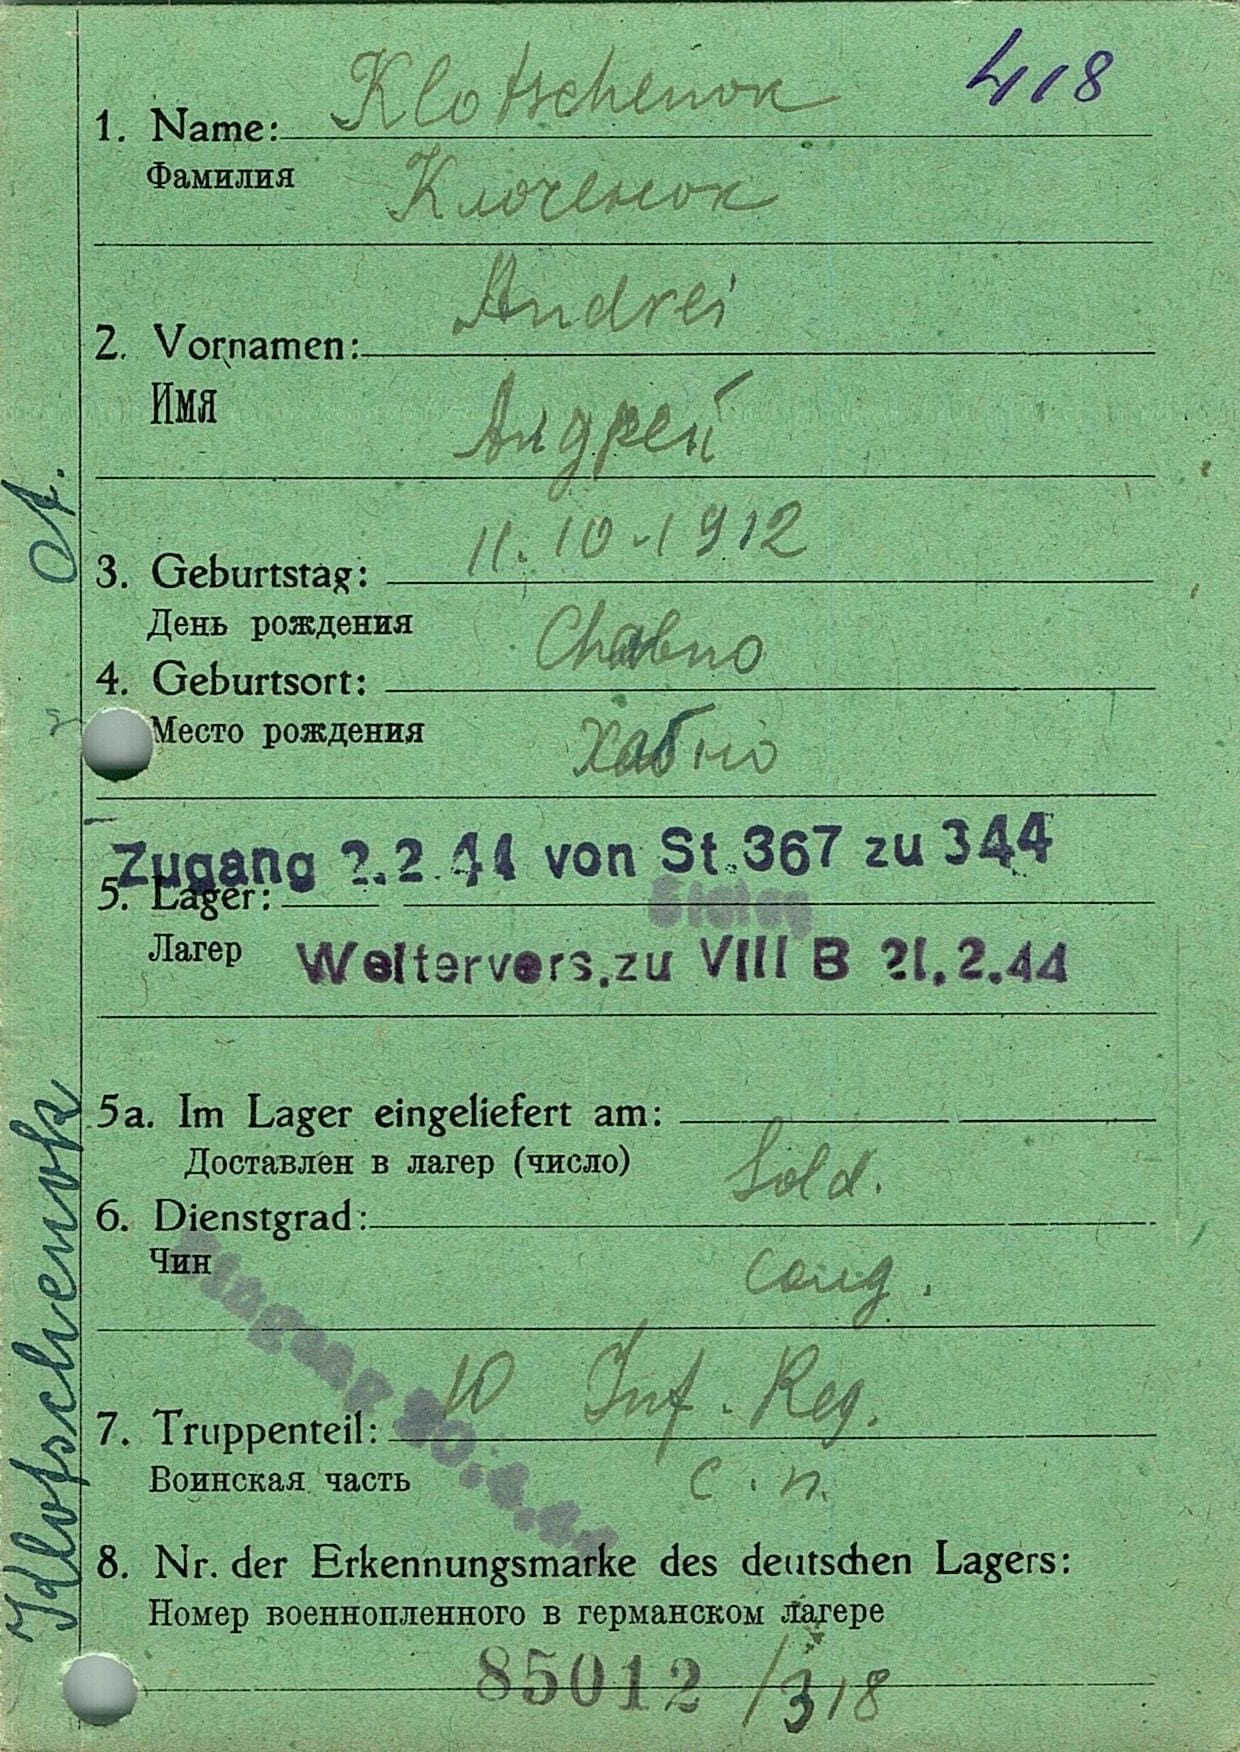 418
Klotschenok
1. Name:
Фамилия
Клоченок
Andrei
2. Vornamen:
Имя
Андрей
11.10.1912
3. Geburtstag:
День рождения
Chabno
4. Geburtsort:
Место рождения
Хабно
Zugang 2.2.44 von St.367 zu 344
5. Lager:
Stalag
Лагер
Weitervers.zu VIII B 21.2.44
5a. Im Lager eingeliefert am:
Доставлен в лагер (число)
Sold.
6. Dienstgrad:
Чин
солд.
10 Inf. Reg.
7. Truppenteil:
Воинская часть
с.п.
8. Nr. der Erkennungsmarke des deutschen Lagers:
Номер военнопленного в германском лагере
85012 /318
Klotschenok A.